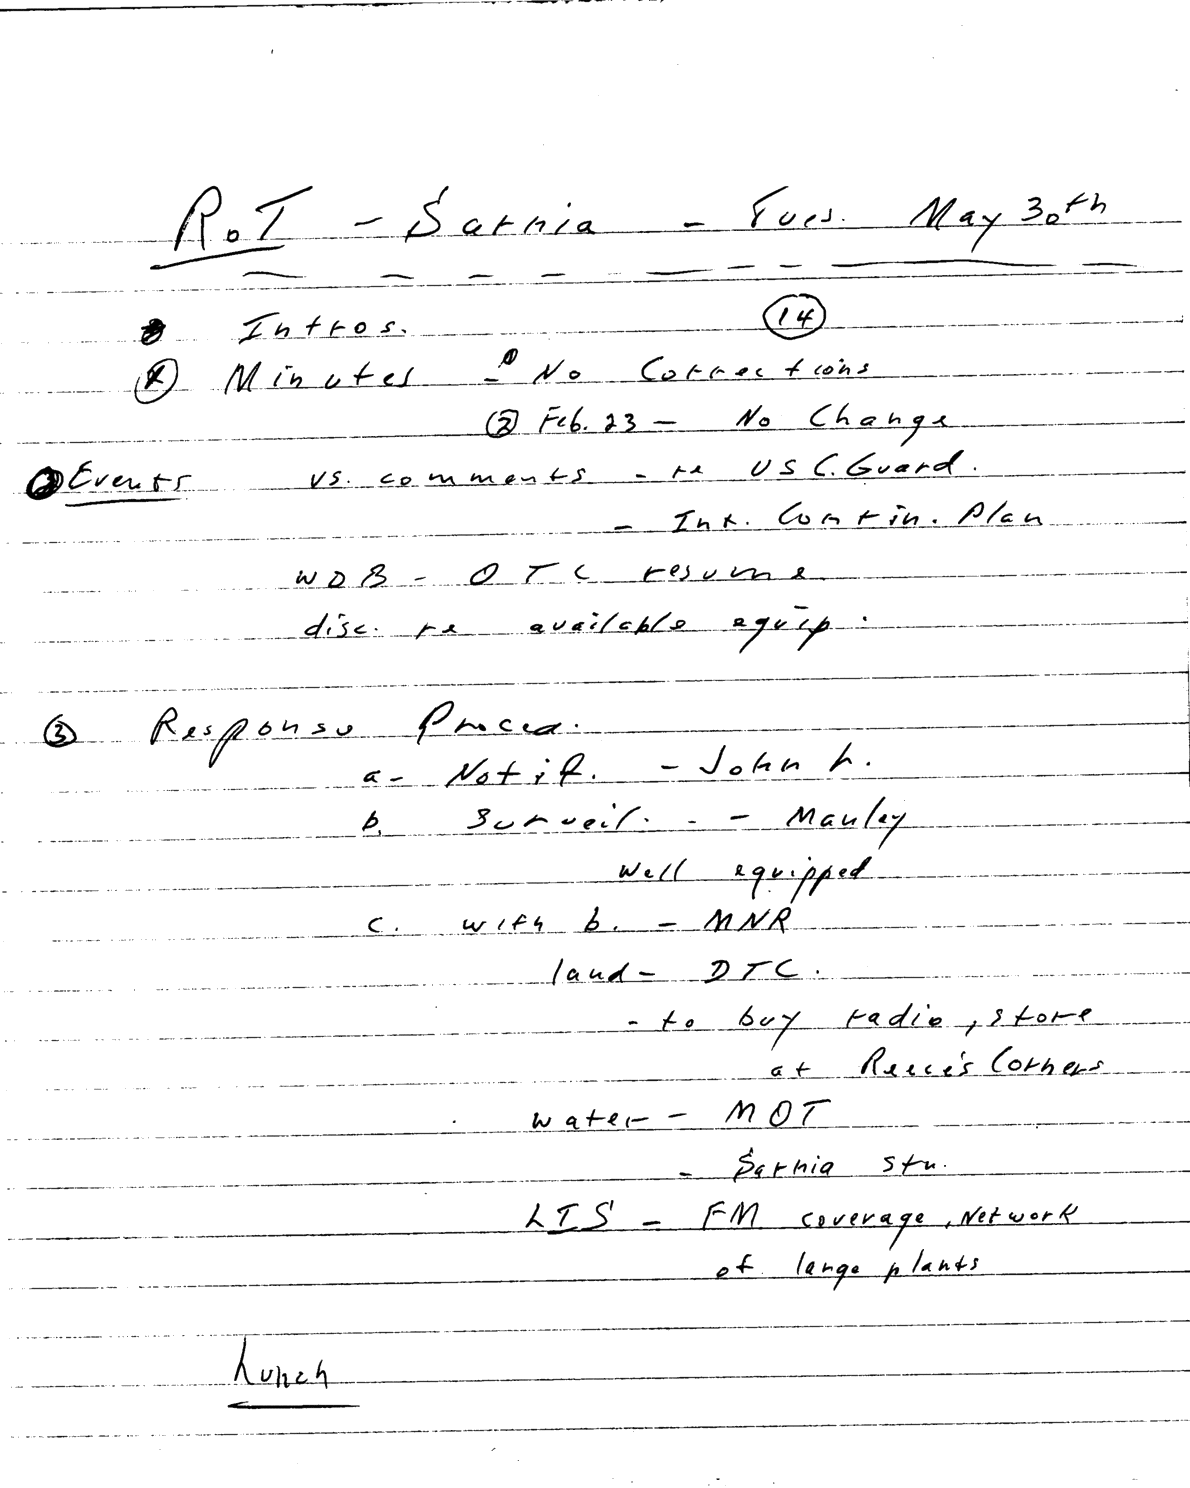 R.o.T - Sarnia - Tues. May 30th
Intros. (14)
① Minutes - ① No Corrections
② Feb. 23 - No Change
② Events vs. comments - re US C. Guard.
- Int. Contin. Plan
WDB - OTC resume
disc. re available equip.
③ Response Proced.
a - Notif. - John L.
b. Surveil. - Manley
Well equipped
c. with b. - MNR
land - DTC.
- to buy radio, store
at Reece's Corners
water - MOT
- Sarnia stn.
LIS - FM coverage, Network
of large plants
Lunch